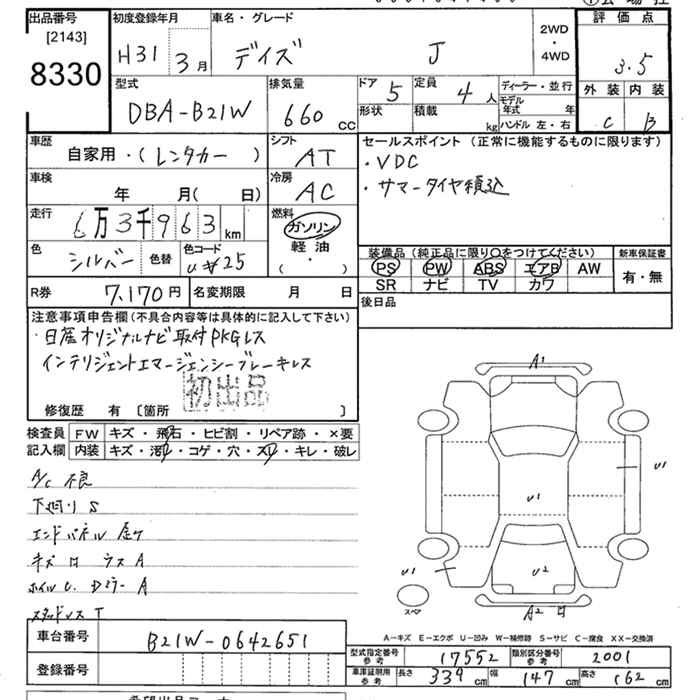 出品番号
[2143]
8330
初度登録年月
H31 3月
車名・グレード
デイズ J
2WD
・
4WD
評価点
3.5
外装 内装
C B
型式
DBA-B21W
排気量
660 CC
ドア 5
形状
定員 4 人
積載 kg
ディーラー・並行
モデル年式 年
ハンドル 左・右
車歴
自家用・(レンタカー)
シフト
AT
車検
年 月(日)
冷房
AC
走行
6万3千963 km
燃料
ガソリン
軽油
( ・ )
色
シルバー
色替
色コード
R券
7,170円
名変期限 月 日
セールスポイント (正常に機能するものに限ります)
・VDC
・サマータイヤ積込
装備品(純正品に限り○をつけてください)
PS PW ABS エアB AW
SR ナビ TV カワ
新車保証書
有・無
後日品
注意事項申告欄(不具合内容等は具体的に記入して下さい)
・日産オリジナルナビ取付PKGレス
インテリジェントエマージェンシーブレーキレス
初出品
修復歴 有 〔箇所 〕
検査員記入欄
FW キズ・飛石・ヒビ割・リペア跡・×要
内装 キズ・汚レ・コゲ・穴・スレ・キレ・破レ
A/C 不良
下廻り S
エンドパネル
キズ
A
スタッドレス T
A1
U1
U1
U2
U1
A2
スペア
A－キズ E－エクボ U－凹み W－補修跡 S－サビ C－腐食 XX－交換済
車台番号
B21W-0642651
登録番号
型式指定番号参考 17552
類別区分番号参考 2001
車庫証明用参考 長さ 339 cm 幅 147 cm 高さ 162 cm